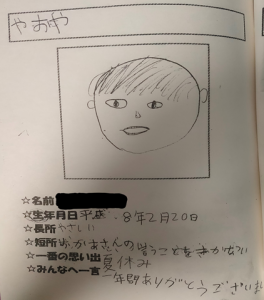 やおや
☆名前
☆生年月日 平成.8年2月20日
☆長所 やさしい
☆短所 おかあさんの言うことをきかない
☆一番の思い出 夏休み
☆みんなへ一言 一年間ありがとうございま